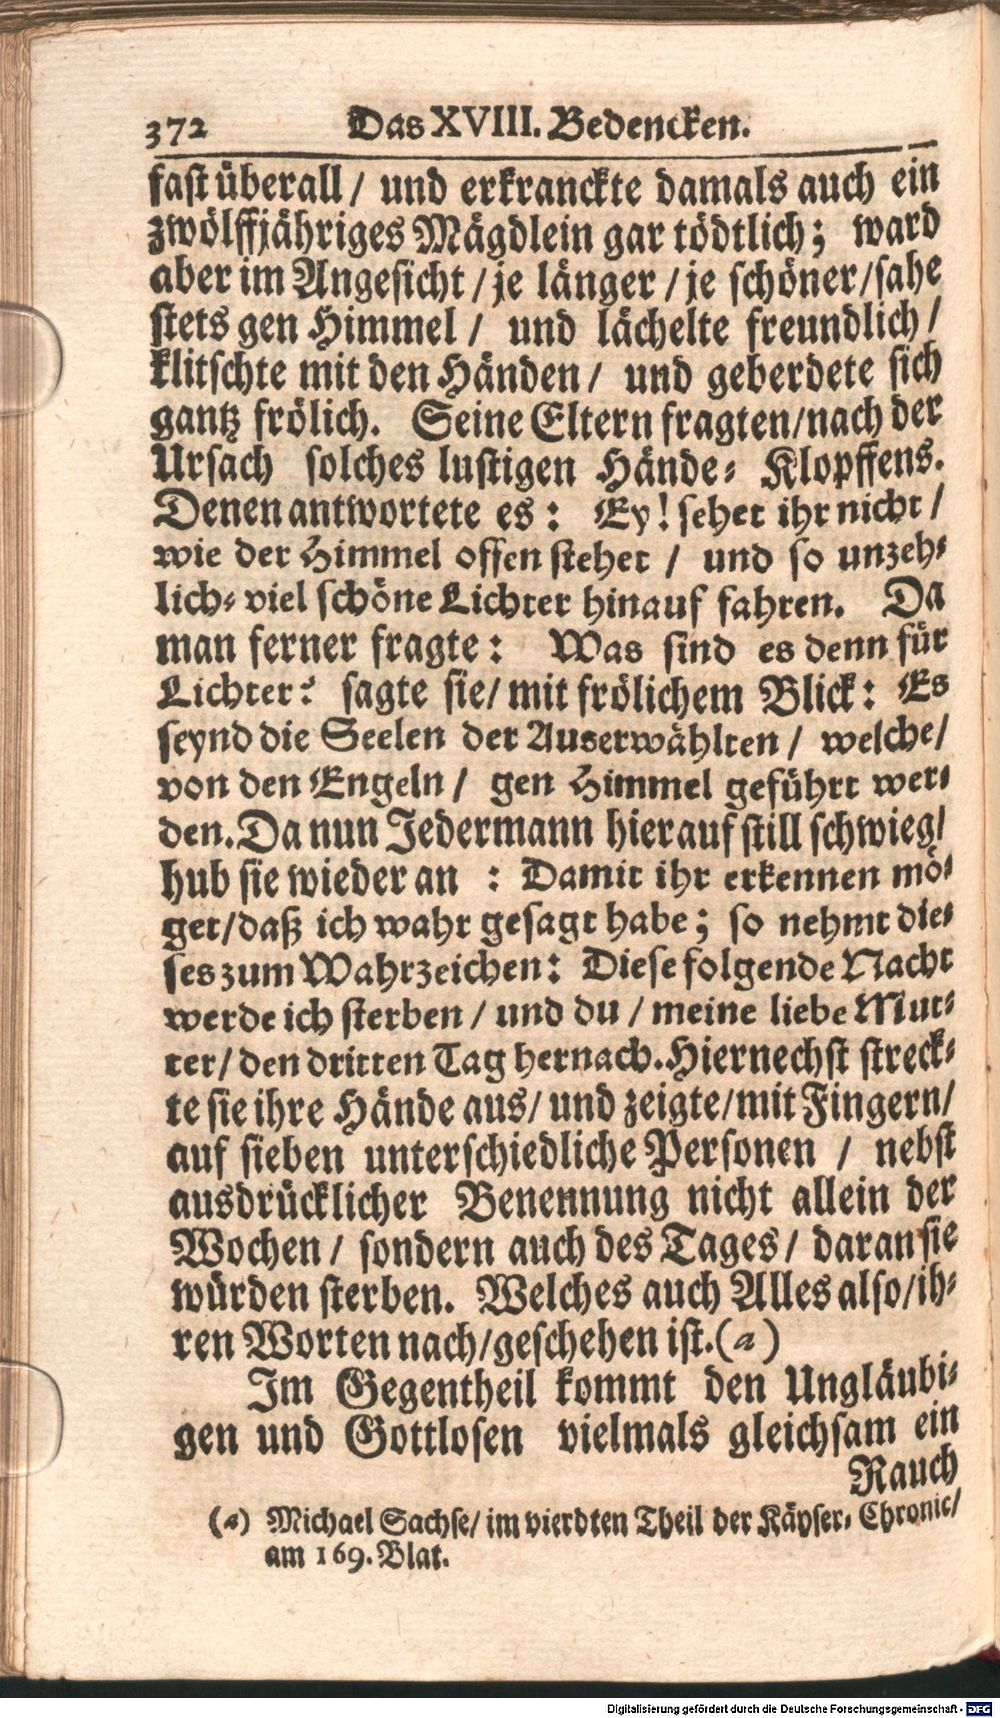 372 Das XVIII. Bedencken.
fast überall / und erkranckte damals auch ein
zwölffjähriges Mägdlein gar tödtlich; ward
aber im Angesicht / je länger / je schöner / sahe
stets gen Himmel / und lächelte freundlich /
klitschte mit den Händen / und geberdete sich
gantz frölich. Seine Eltern fragten / nach der
Ursach solches lustigen Hände- Klopffens.
Denen antwortete es: Ey! sehet ihr nicht /
wie der Himmel offen stehet / und so unzeh-
lich- viel schöne Lichter hinauf fahren. Da
man ferner fragte: Was sind es denn für
Lichter? sagte sie / mit frölichem Blick: Es
seynd die Seelen der Auserwählten / welche /
von den Engeln / gen Himmel geführt wer-
den. Da nun Jedermann hierauf still schwieg /
hub sie wieder an : Damit ihr erkennen mö-
get / daß ich wahr gesagt habe; so nehmt die-
ses zum Wahrzeichen: Diese folgende Nacht
werde ich sterben / und du / meine liebe Mut-
ter / den dritten Tag hernach. Hiernechst streck-
te sie ihre Hände aus / und zeigte / mit Fingern /
auf sieben unterschiedliche Personen / nebst
ausdrücklicher Benennung nicht allein der
Wochen / sondern auch des Tages / daran sie
würden sterben. Welches auch Alles also / ih-
ren Worten nach / geschehen ist. (a)
Im Gegentheil kommt den Ungläubi-
gen und Gottlosen vielmals gleichsam ein
Rauch
(a) Michael Sachse / im vierdten Theil der Käyser- Chronic /
am 169. Blat.
Digitalisierung gefördert durch die Deutsche Forschungsgemeinschaft - DFG